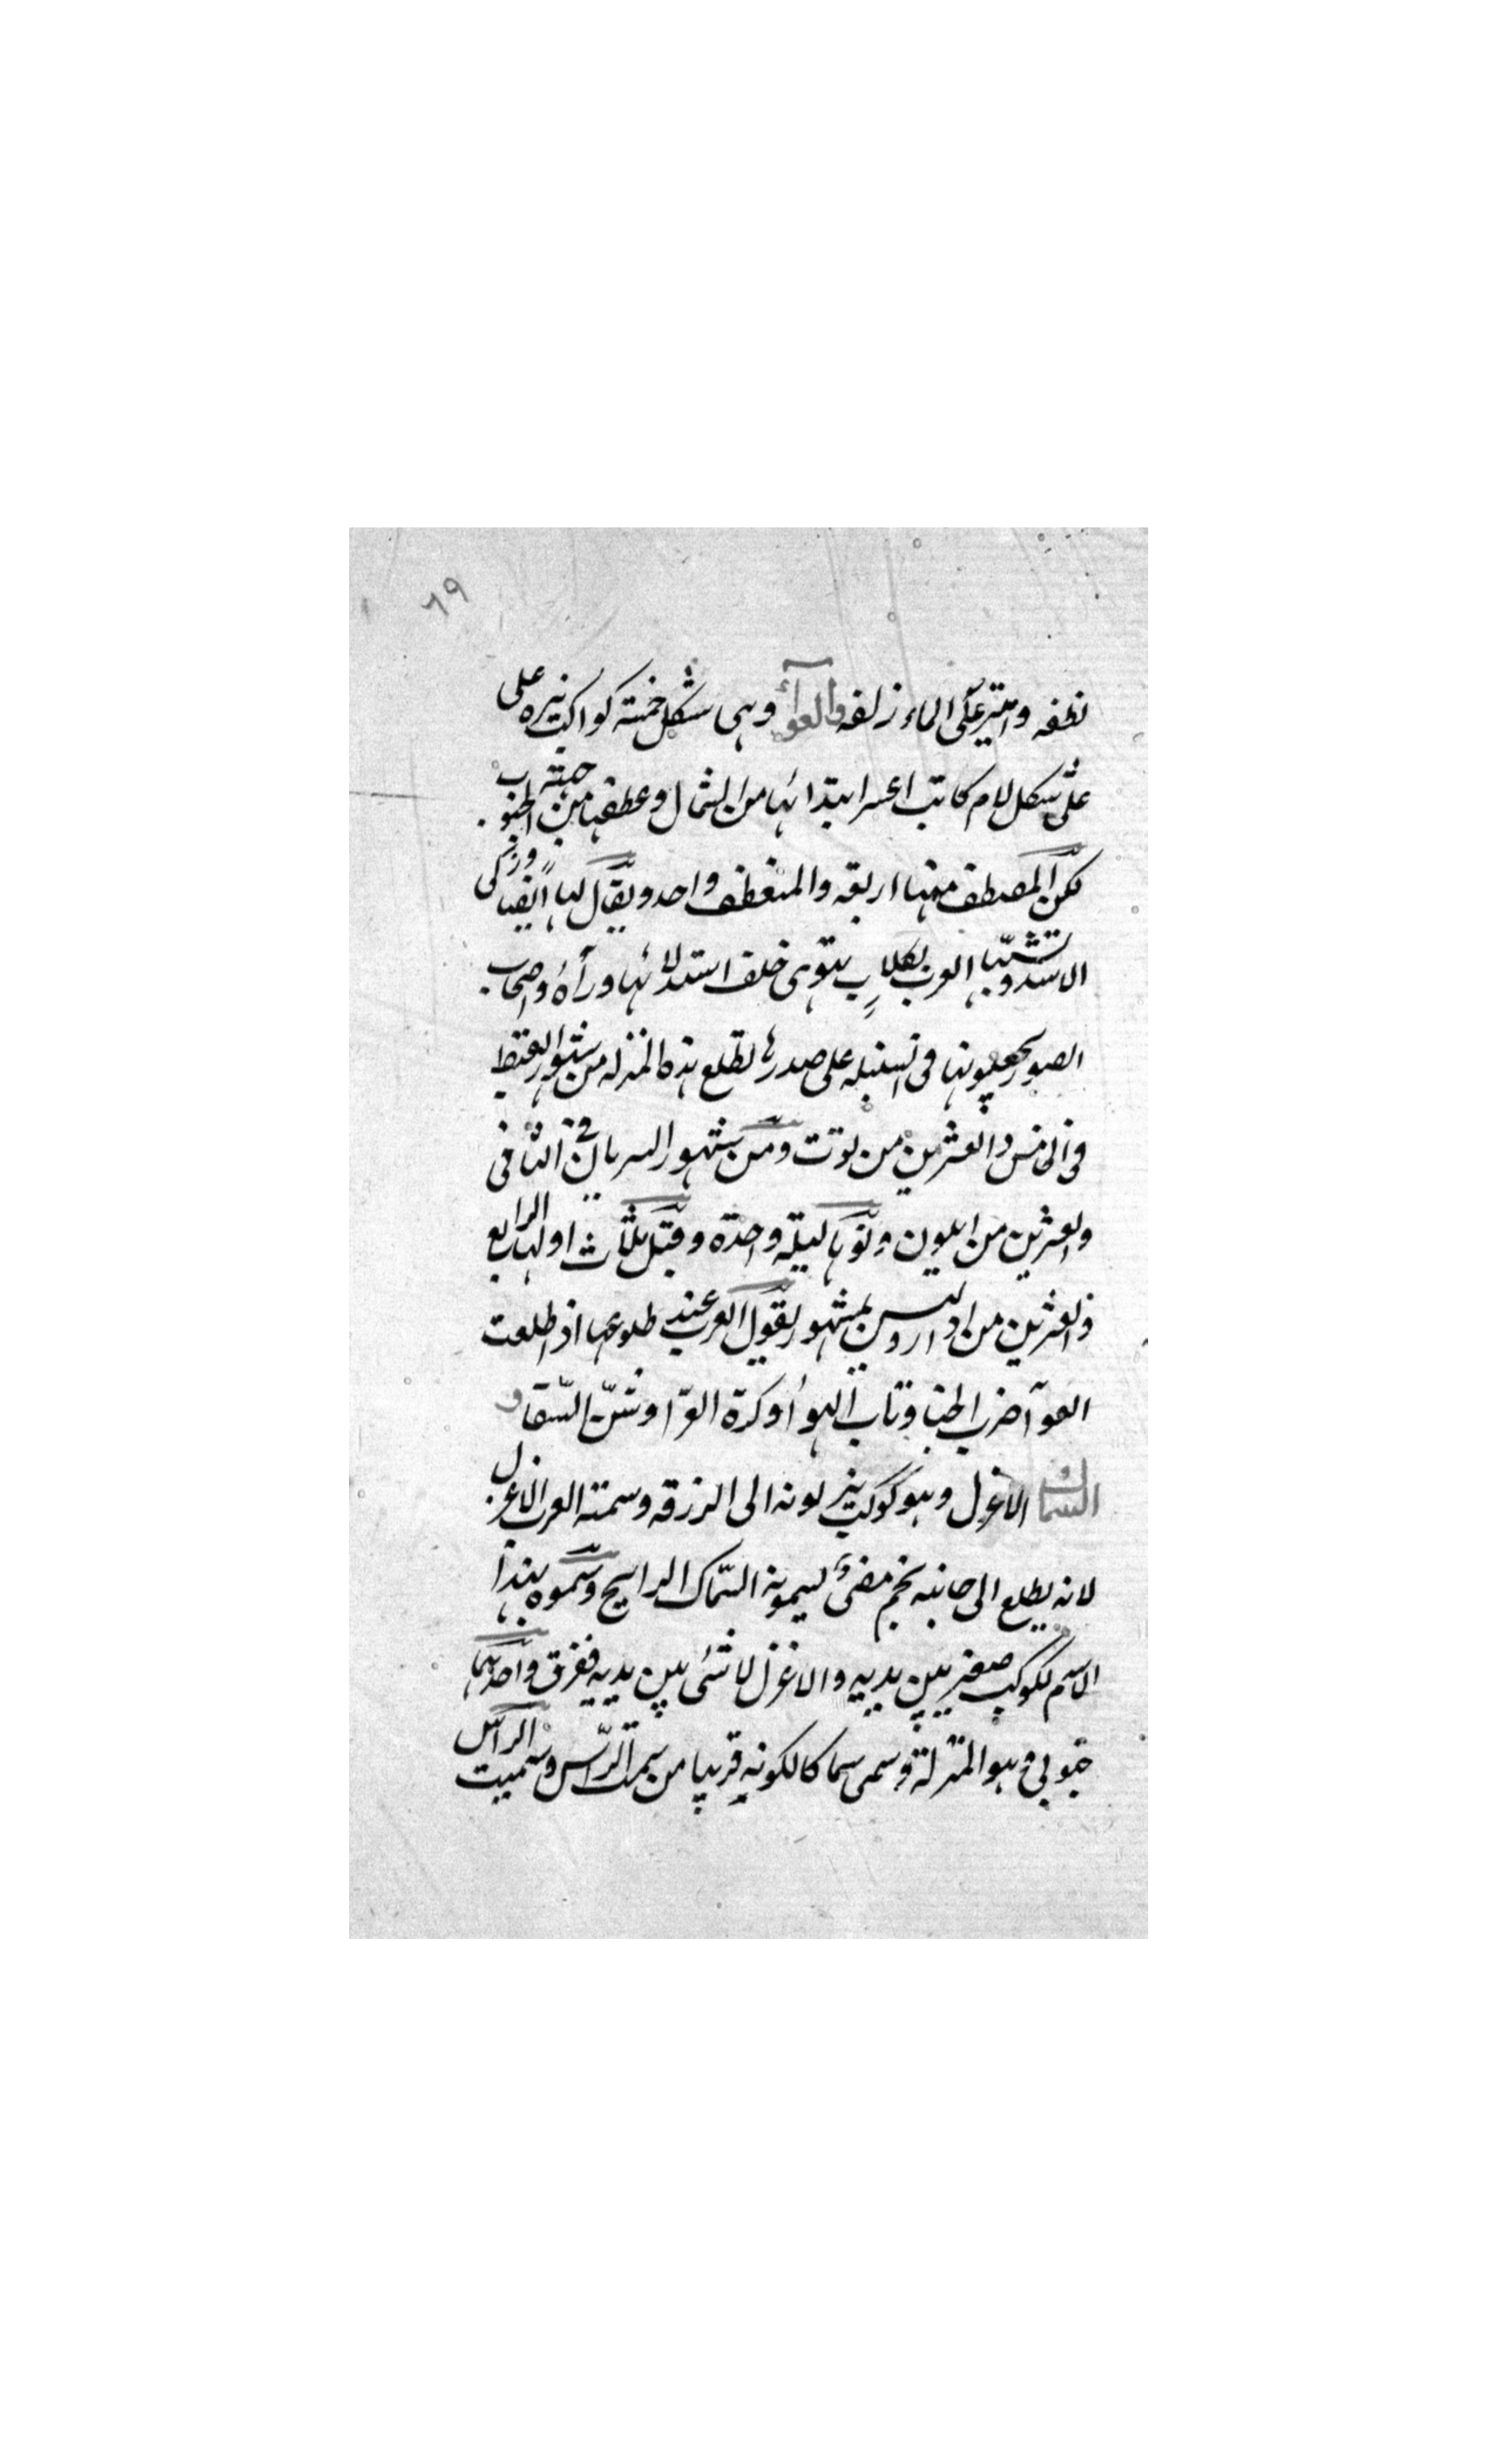 ٦٩
نطفه وامتير على الماء زلفه والعوآء وهى شكل خمسة كواكب نيره على
على شكل لام كاتب اعسر ابتدائها من الشمال وعطفها من جهة الجنوب
لكن المصطف منها اربعه والمنعطف واحد ويقال لها ايضا وركى
الاسد وتشبهها العرب بكلاب تتوهى خلف استدلالها ورآه واصحاب
الصور يجعلونها فى السنبله على صدرها تطلع هذه المنزله من شهور القبط
فى الخامس والعشرين من توت ومن شهور السريان فى الثانى
والعشرين من ايلون ونوها ليلة واحدة وقيل ثلاث اولها الرابع
والعشرين من اذار وليس بمشهور تقول العرب عند طلوعها اذ اطلعت
العوآ ضرب الخبا وتاب الهوا وكرة العرا وشنّ السّقا و
السماك الاعزل وهو كوكب نير لونه الى الزرقه وسمته العرب الاعزل
لانه يطلع الى جانبه نجم مضئ يسمونه السّماك الرامح وسموه بهذا
الاسم لكوكب صغير بين يديه والاعزل لا شئ بين يديه ففرق واحدهما
جنوبى وهو المنزلة وسمى سماكا لكونه قريبا من سمت الرّاس وسميت الراس